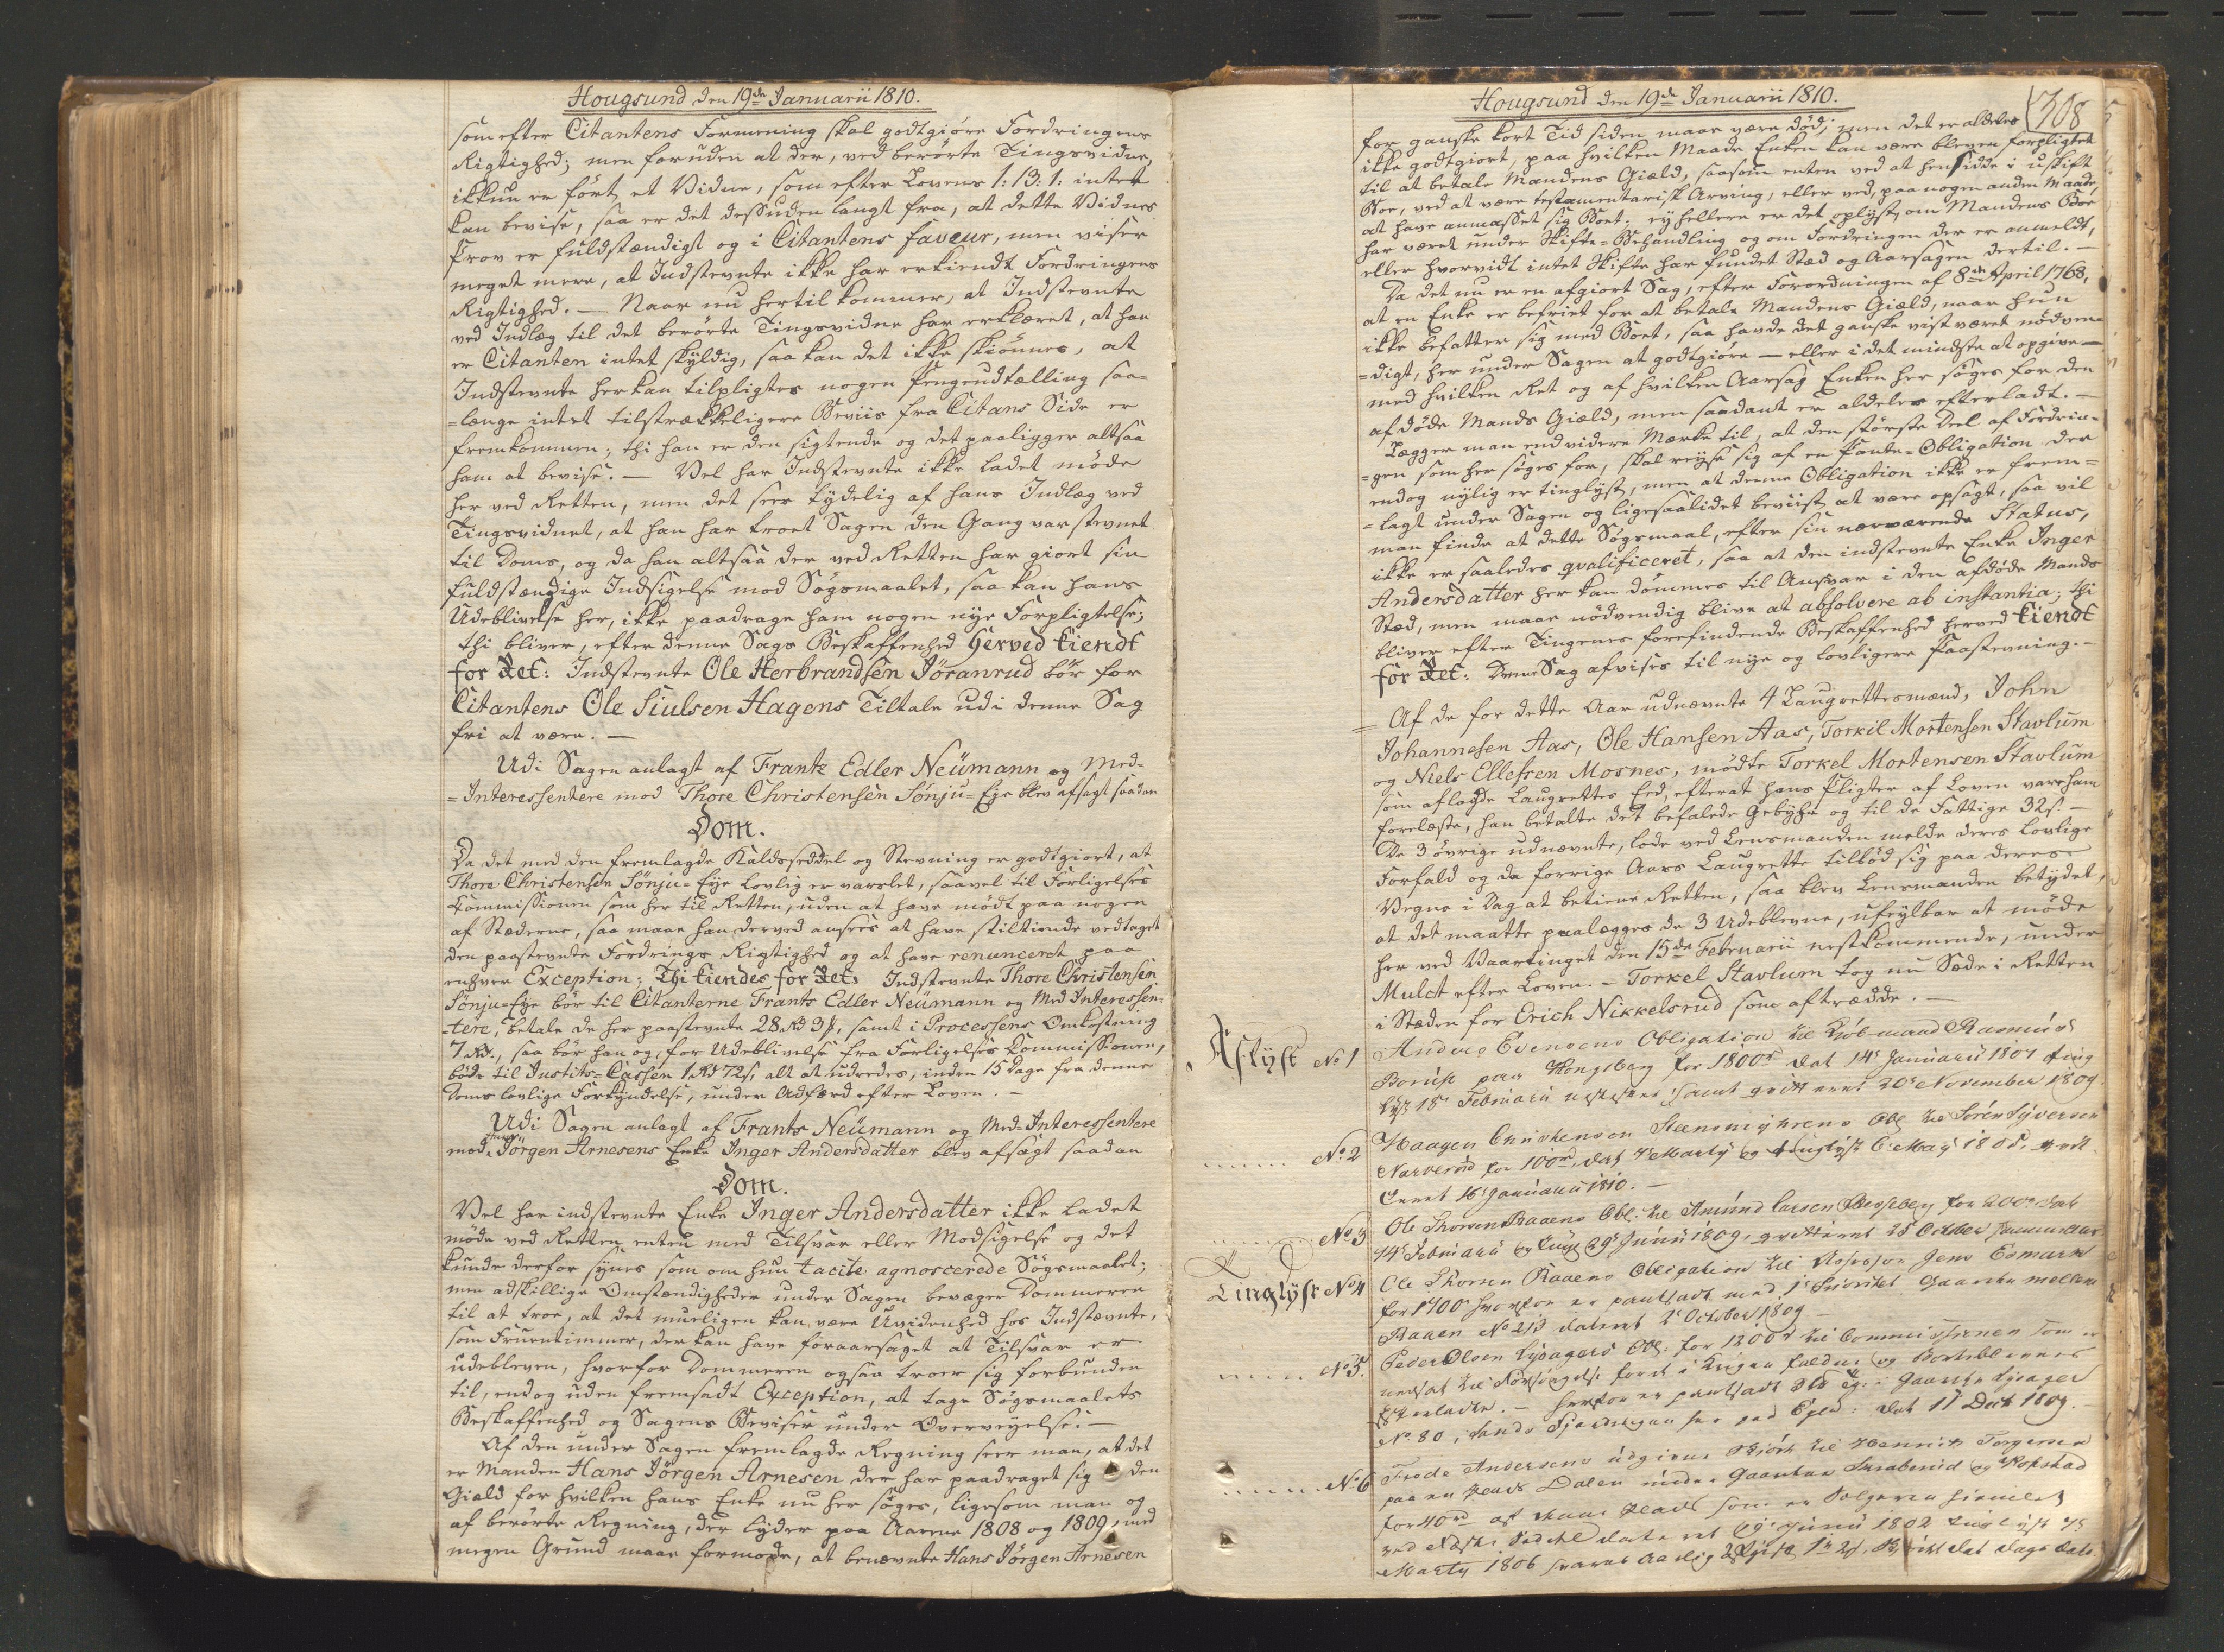 Hougsund den 19de Januarii 1810.
som efter Citantens Formening skal godtgiöre Fordringens
Rigtighed; men foruden at der, ved berörte Tingsvidne,
ikkun er fört et Vidne, som efter Lovens 1: 13: 1: intet
kan bevise, saa er det dessuden langt fra, at dette Vidnes
Prov er fuldstændigt og i Citantens faveur, men viser
meget mere, at Indstevnte ikke har erkiendt Fordringens
Rigtighed. — Naar nu hertil kommer, at Indstevnte
ved Indlæg til det berörte Tingsvidne har erklæret, at han
er Citanten intet skyldig, saa kan det ikke skiönnes, at
Indstevnte her kan tilpligtes nogen Pengeudtælling saa=
=længe intet tilstrækkeligere Beviis fra Citans Side er
fremkommen; thi han er den sigtende og det paaligger altsaa
ham at bevise. — Vel har Indstevnte ikke ladet möde
her ved Retten, men det sees tydelig af hans Indlæg ved
Tingsvidnet, at han har troet Sagen den Gang var stevnet
til Doms, og da han altsaa der ved Retten har giort sin
fuldstændige Indsigelse mod Sögsmaalet, saa kan hans
Udeblivelse her, ikke paadrage ham nogen nye Forpligtelse;
thi bliver, efter denne Sags Beskaffenhed herved kiendt
for Ret: Indstevnte Ole Herbrandsen Jöranrud bör for
Citantens Ole Siulsen Hagens Tiltale udi denne Sag
fri at være. —
Udi Sagen anlagt af Frantz Edler Neümann og Med-
=Interessentere mod Thore Christensen Sönju=Eje blev afsagt saadan
Dom.
Da det med den fremlagde Kaldsseddel og Stevning er godtgiort, at
Thore Christensen Sönju=Eye lovlig er varslet, saavel til Forligelses
Commissionen som her til Retten, uden at have mödt paa nogen
af Stæderne, saa maae han derved ansees at have stiltiende vedtaget
den paastevnte Fordrings Rigtighed og at have renunceret paa
enhver Exception; Thi kiendes for Ret: Indstevnte Thore Christensen
Sönju=Eye bör til Citanterne Frants Edler Neümann og Med Interessen=
=tere, betale de her paastevnte 28 Rd 3 s, samt i Processens Omkostning
7 Rd., saa bör han og, for Udeblivelse fra Forligelses Commissionen,
böde til Justits=Cassen 1 Rd 72 s, alt at udredes, inden 15 Dage fra denne
Doms lovlige Forkyndelse, under Adfærd efter Loven. —
Udi Sagen anlagt af Frants Neümann og Med-Interessentere
mod Hans Jörgen Arnesens Enke Inger Andersdatter blev afsagt saadan
Dom.
Vel har indstevnte Enke Inger Andersdatter ikke ladet
möde ved Retten enten med Tilsvar eller Modsigelse og det
kunde derfor synes som om hun tacite agnoscerede Sögsmaalet;
men adskillige Omstændigheder under Sagen bevæger Dommeren
til at troe, at det mueligen kan være Uvidenhed hos Indstævnte,
som Fruentimmer, der kan have foraarsaget at Tilsvar er
udebleven, hvorfor Dommeren ogsaa troer sig forbunden
til, endog uden fremsadt Exception, at tage Sögsmaalets
Beskaffenhed og Sagens Beviser under Overveyelse. —
Af den under Sagen fremlagde Regning seer man, at det
er Manden Hans Jörgen Arnesen der har paadraget sig den
Giæld for hvilken hans Enke nu her söges, ligesom man og
af berörte Regning, der lyder paa Aarene 1808 og 1809, med
megen Grund maae formode, at benævnte Hans Jörgen Arnesen
Hougsund den 19de Januarii 1810.
308
for ganske kort Tid siden maae være död; men det er aldeles
ikke godtgiort, paa hvilken Maade Enken kan være bleven forpligtet
til at betale Mandens Giæld, saasom enten ved at hensidde i uskift
Boe, ved at være testamentarisk Arving, eller ved, paa nogen anden Maade,
at have anmasset sig Boet; ey hellere er det oplyst, om Mandens Boe
har været under Skifte=Behandling og om Fordringen der er anmeldt,
eller hvorvidt intet Skifte har fundet Sted og Aarsagen dertil. —
Da det nu er en afgiort Sag, efter Forordningen af 8de April 1768,
at en Enke er befriet for at betale Mandens Giæld, naar hun
ikke befatter sig med Boet, saa havde det ganske vist været nödven=
=digt, her under Sagen at godtgiöre — eller i det mindste at opgive —
med hvilken Ret og af hvilken Aarsag Enken her söges for den
afdöde Mands Giæld, men saadant er aldeles efterladt. —
Lægger man endvidere Mærke til, at den störste Deel af Fordrin=
=gen som her söges for, skal reyse sig af en Pante=Obligation der
endog nylig er tinglyst, men at denne Obligation ikke er frem=
=lagt under Sagen og ligesaalidet beviist at være opsagt, saa vil
man finde at dette Sögsmaal, efter sin nærværende Status,
ikke er saaledes qvalificeret, saa at den indstevnte Enke Inger
Andersdatter her kan dömmes til Ansvar i den afdöde Mands
Sted, men maae nödvendig blive at absolvere ab instantia; thi
bliver efter Tingenes forefindende Beskaffenhed herved kiendt
for Ret: Denne Sag afvises til nye og lovligere Paastevning. —
Af de for dette Aar udnævnte 4 Laugrettesmænd, John
Johannesen Aas, Ole Hansen Aas, Torkil Mortensen Stavlum
og Niels Ellefsen Mosnes, mödte Torkel Mortensen Stavlum
som aflagde Laugrettes Eed, efterat hans Pligter af Loven vare ham
forelæste, han betalte det befalede Gebyhr og til de Fattige 32 s. —
De 3 övrige udnævnte, lode ved Lensmanden melde deres lovlige
Forfald og da forrige Aars Laugrette tilböd sig paa deres
Vegne i Dag at betiene Retten, saa blev Lensmanden betydet,
at det maatte paalægges de 3 Udeblevne, ufeylbar at möde
her ved Vaartinget den 15de Februarii nestkommende, under
Mulct efter Loven. — Torkel Stavlum tog nu Sæde i Retten
i Steden for Erich Nikkelsrud som aftrædde. —
Aflyst No 1 Anders Evensens Obligation til Kiöbmand Rasmus
Borup paa Kongsberg for 1800 rd dat 14de Januarii 1807 ting
lyst 18 Februarii samt qvitteret 30 November 1809.
No 2 Haagen Christensen Obl til Sören Syversen
Narverud for 100 rd, dat Marty og tinglyst 6 May 1808, qvit
teret 16 Januarii 1810. —
No 3 Ole Thorsen Raaens Obl: til Amund Larsen for 200 rd dat
14 Februarii og tingl 29 Junii 1809, qvitteret 25 October
Tinglyst No 4 Ole Thorsen Raaens Obligation til Assessor Jens Esmark
for 1700 hvorfor er pantsadt med 1 Prioritet Gaarden mellem
Raaen No 213 dateret 2 October 1809
No 5. Peder Olsen Lysagers Obl. for 1200 rd til Commissionen som er
nedsat til Forsörgelse for de i Krigen faldnes og
Efterladte. — hvorfor er pantsadt i Gaarden Lysager
No 80, i Sands dat 11 Decb 1809.
No 6 Frode Andersens udgivne Skiöde til Henrich Torgersen
paa en Plads Dalen under Gaarden og Hokstad
for 40 rd
Junii 1802 tinglyst
Marty 1806